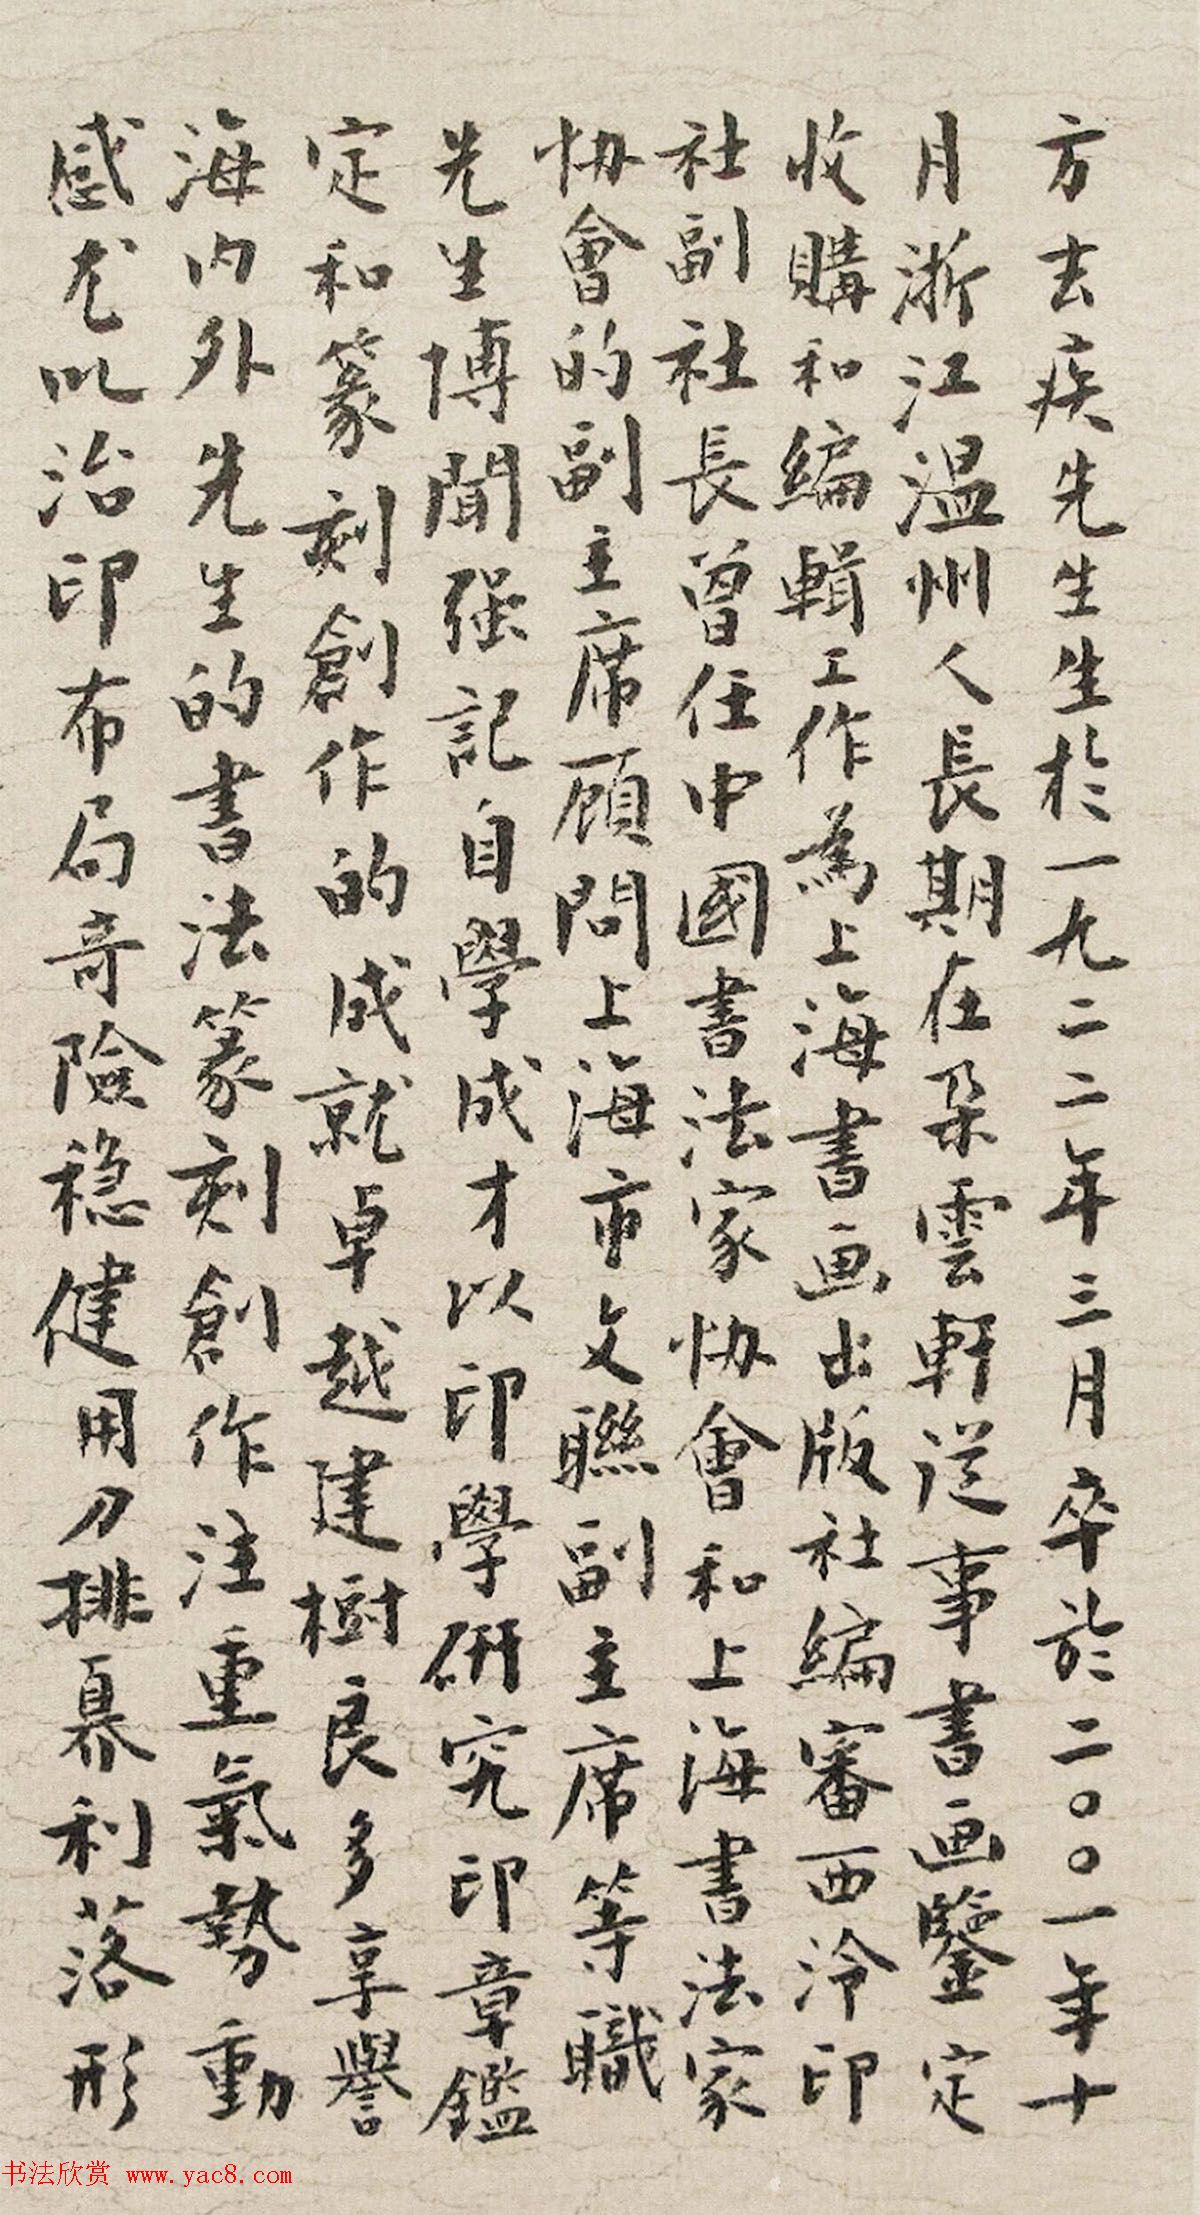 方去疾先生生於一九二二年三月卒於二〇〇一年十
月浙江温州人長期在朵雲軒從事書画鑒定
收購和編輯工作為上海書画出版社編審西泠印
社副社長曾任中國書法家协會和上海書法家
协會的副主席顾問上海市文聯副主席等職
先生博聞强記自學成才以印學研究印章鑑
定和篆刻創作的成就卓越建樹良多享譽
海内外先生的書法篆刻創作注重氣勢動
感尤以治印布局奇險穏健用刀排奡利落形
书法欣赏 www.yac8.com